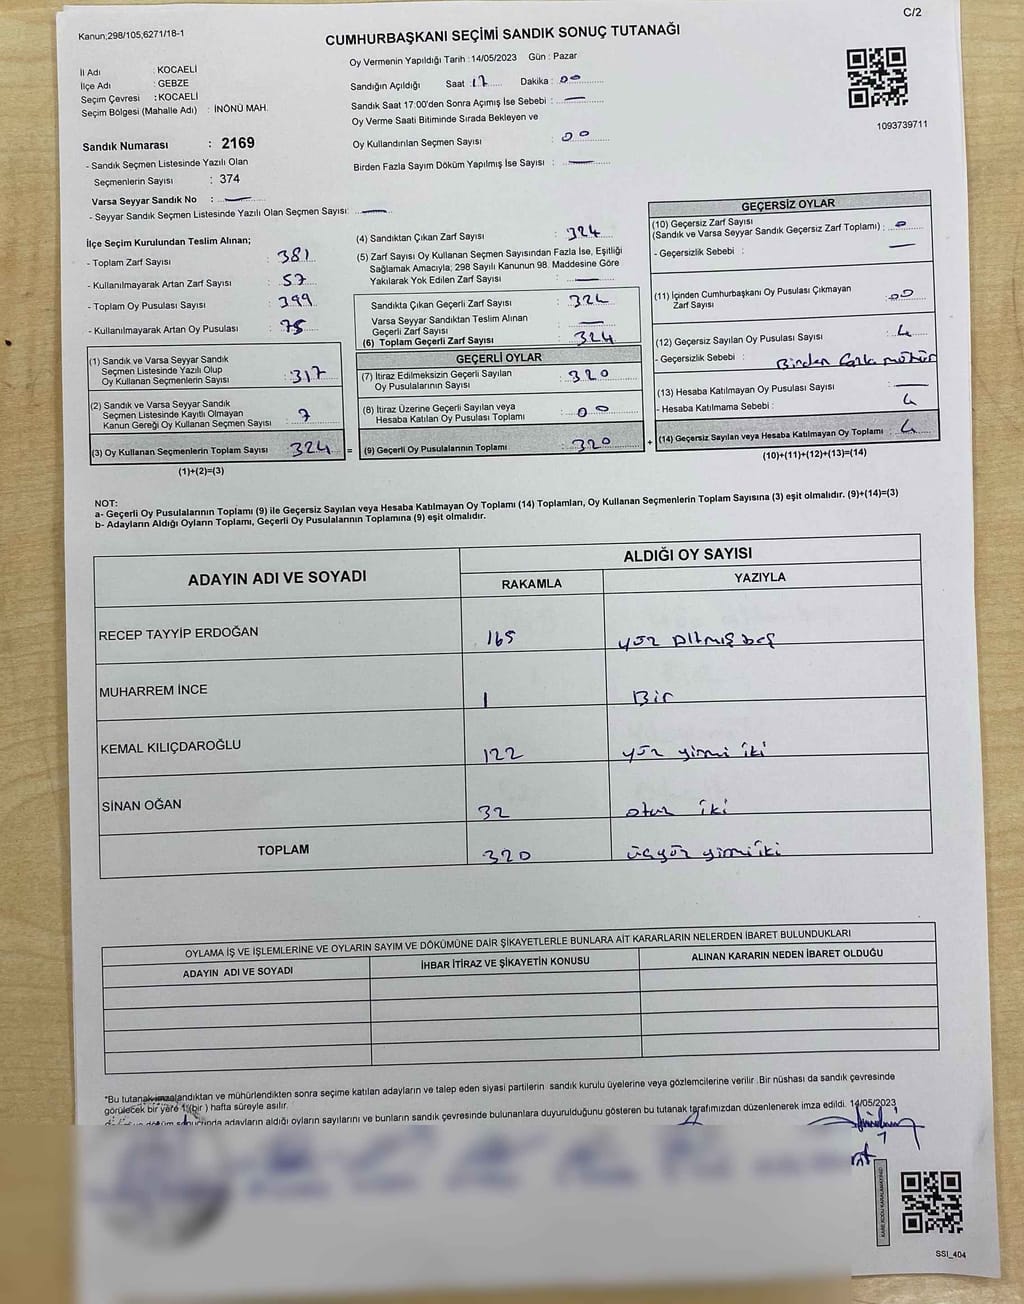 C/2
Kanun;298/105,6271/18-1
CUMHURBAŞKANI SEÇİMİ SANDIK SONUÇ TUTANAĞI
İl Adı : KOCAELİ
İlçe Adı : GEBZE
Seçim Çevresi : KOCAELİ
Seçim Bölgesi (Mahalle Adı) : İNÖNÜ MAH.
Sandık Numarası : 2169
- Sandık Seçmen Listesinde Yazılı Olan
Seçmenlerin Sayısı : 374
Varsa Seyyar Sandık No : —
- Seyyar Sandık Seçmen Listesinde Yazılı Olan Seçmen Sayısı: —
Oy Vermenin Yapıldığı Tarih : 14/05/2023 Gün : Pazar
Sandığın Açıldığı Saat 17 Dakika : 00
Sandık Saat 17:00'den Sonra Açımış İse Sebebi : —
Oy Verme Saati Bitiminde Sırada Bekleyen ve
Oy Kullandırılan Seçmen Sayısı : 00
Birden Fazla Sayım Döküm Yapılmış İse Sayısı : —
1093739711
İlçe Seçim Kurulundan Teslim Alınan;
- Toplam Zarf Sayısı : 381
- Kullanılmayarak Artan Zarf Sayısı : 57
- Toplam Oy Pusulası Sayısı : 399
- Kullanılmayarak Artan Oy Pusulası : 75
(1) Sandık ve Varsa Seyyar Sandık
Seçmen Listesinde Yazılı Olup
Oy Kullanan Seçmenlerin Sayısı : 317
(2) Sandık ve Varsa Seyyar Sandık
Seçmen Listesinde Kayıtlı Olmayan
Kanun Gereği Oy Kullanan Seçmen Sayısı : 7
(3) Oy Kullanan Seçmenlerin Toplam Sayısı : 324
(1)+(2)=(3)
(4) Sandıktan Çıkan Zarf Sayısı : 324
(5) Zarf Sayısı Oy Kullanan Seçmen Sayısından Fazla İse, Eşitliği
Sağlamak Amacıyla; 298 Sayılı Kanunun 98. Maddesine Göre
Yakılarak Yok Edilen Zarf Sayısı : —
Sandıkta Çıkan Geçerli Zarf Sayısı : 324
Varsa Seyyar Sandıktan Teslim Alınan
Geçerli Zarf Sayısı : —
(6) Toplam Geçerli Zarf Sayısı : 324
GEÇERLİ OYLAR
(7) İtiraz Edilmeksizin Geçerli Sayılan
Oy Pusulalarının Sayısı : 320
(8) İtiraz Üzerine Geçerli Sayılan veya
Hesaba Katılan Oy Pusulası Toplamı : 00
= (9) Geçerli Oy Pusulalarının Toplamı : 320
GEÇERSİZ OYLAR
(10) Geçersiz Zarf Sayısı
(Sandık ve Varsa Seyyar Sandık Geçersiz Zarf Toplamı) : 0
- Geçersizlik Sebebi : —
(11) İçinden Cumhurbaşkanı Oy Pusulası Çıkmayan
Zarf Sayısı : 00
(12) Geçersiz Sayılan Oy Pusulası Sayısı : 4
- Geçersizlik Sebebi : Birden fazla mühür
(13) Hesaba Katılmayan Oy Pusulası Sayısı : —
- Hesaba Katılmama Sebebi : 4
+ (14) Geçersiz Sayılan veya Hesaba Katılmayan Oy Toplamı : 4
(10)+(11)+(12)+(13)=(14)
NOT:
a- Geçerli Oy Pusulalarının Toplamı (9) ile Geçersiz Sayılan veya Hesaba Katılmayan Oy Toplamı (14) Toplamları, Oy Kullanan Seçmenlerin Toplam Sayısına (3) eşit olmalıdır. (9)+(14)=(3)
b- Adayların Aldığı Oyların Toplamı, Geçerli Oy Pusulalarının Toplamına (9) eşit olmalıdır.
ADAYIN ADI VE SOYADI
ALDIĞI OY SAYISI
RAKAMLA YAZIYLA
RECEP TAYYİP ERDOĞAN 165 yüz altmış beş
MUHARREM İNCE 1 Bir
KEMAL KILIÇDAROĞLU 122 yüz yirmi iki
SİNAN OĞAN 32 otuz iki
TOPLAM 320 üçyüz yirmi iki
OYLAMA İŞ VE İŞLEMLERİNE VE OYLARIN SAYIM VE DÖKÜMÜNE DAİR ŞİKAYETLERLE BUNLARA AİT KARARLARIN NELERDEN İBARET BULUNDUKLARI
ADAYIN ADI VE SOYADI İHBAR İTİRAZ VE ŞİKAYETİN KONUSU ALINAN KARARIN NEDEN İBARET OLDUĞU
*Bu tutanak imzalandıktan ve mühürlendikten sonra seçime katılan adayların ve talep eden siyasi partilerin sandık kurulu üyelerine veya gözlemcilerine verilir .Bir nüshası da sandık çevresinde
görülecek bir yere 1 (bir ) hafta süreyle asılır.
adayların aldığı oyların sayılarını ve bunların sandık çevresinde bulunanlara duyurulduğunu gösteren bu tutanak tarafımızdan düzenlenerek imza edildi. 14/05/2023
KARE KODU KARALAMAYINIZ!
SSI_404